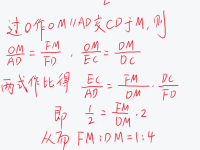 过O作OM//AD交CD于M,则
OM/AD = FM/FD, OM/EC = DM/DC
两式作比得 EC/AD = FM/DM · DC/FD
即 1/2 = FM/DM · 2
从而 FM:DM=1:4